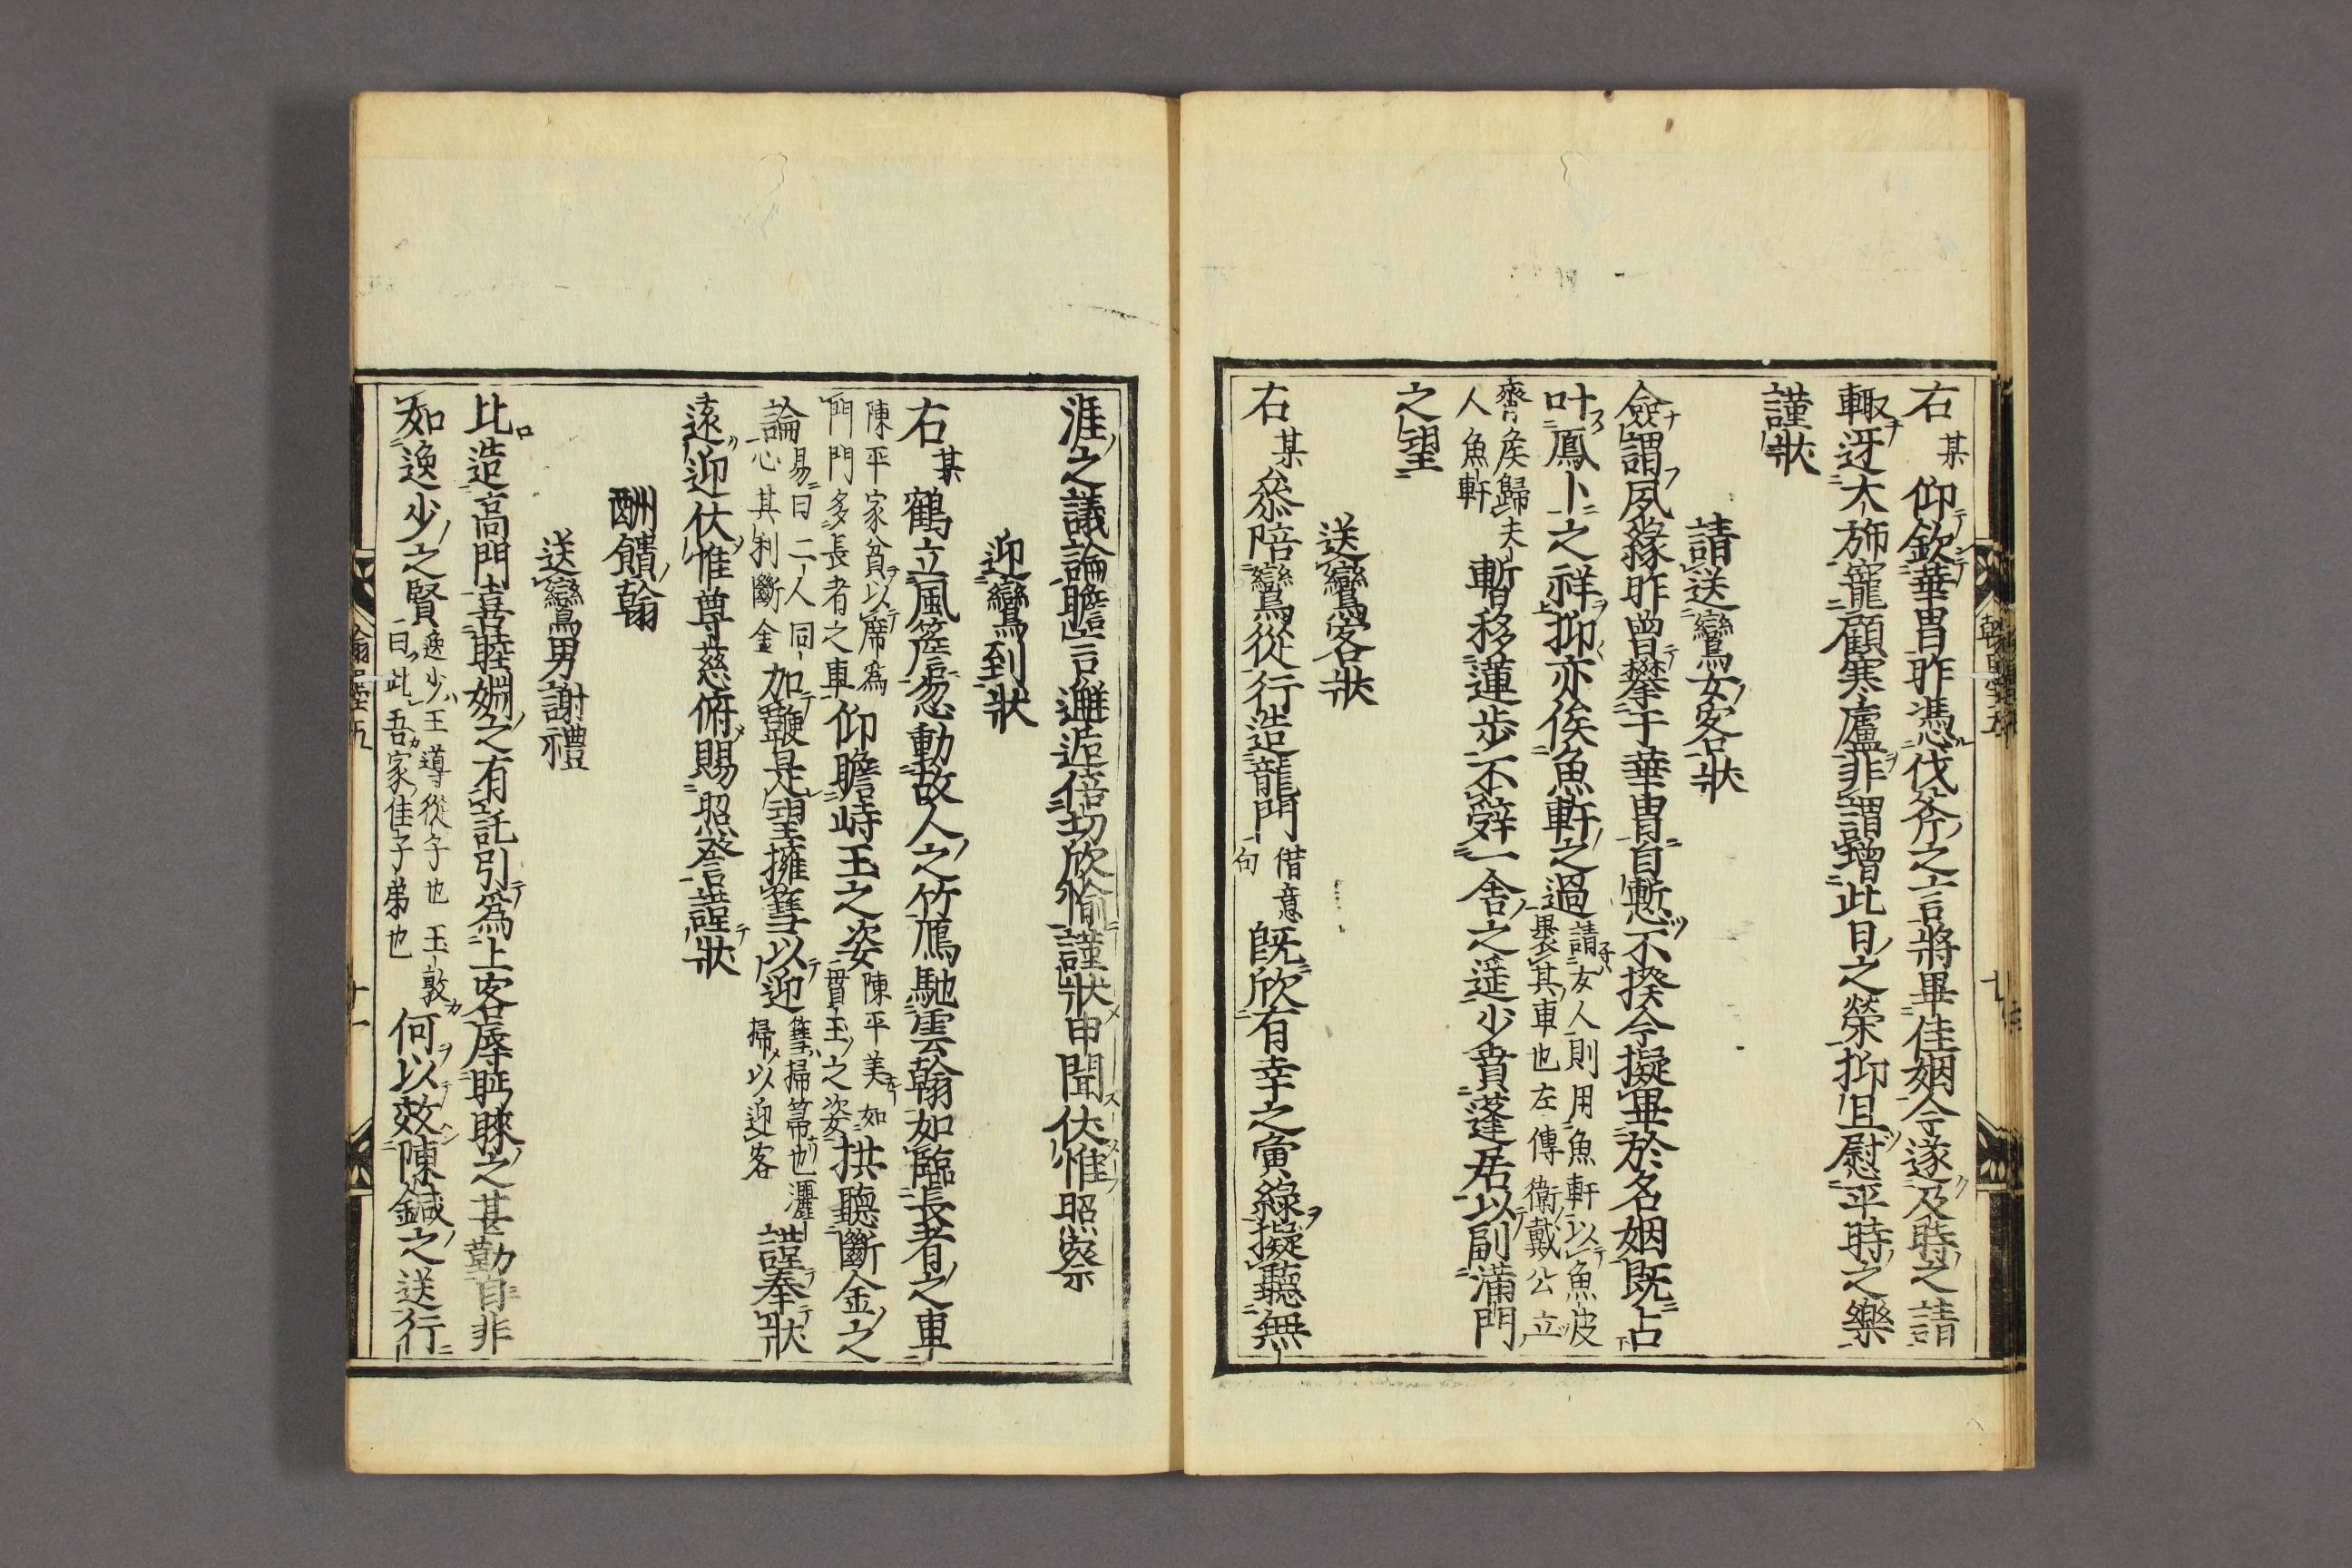 右某仰欽華胄昨憑伐斧之言將畢佳姻今遂及時之請
輙迓大旆寵顧寒廬非謂增此日之榮抑且慰平時之樂
謹狀
請送鸞女客狀
僉謂夙緣昨曾攀于華胄自慙不揆今擬畢於名姻既占
叶鳳卜之祥抑亦俟魚軒之過請女人則用魚軒以魚皮
裹其車也左傳衞戴公立
齊侯歸夫
人魚軒暫移蓮步不辞一舍之遥少賁蓬居以副滿門
之望
送鸞客狀
右某叅陪鸞從行造龍門借意
句既欣有幸之寅緣擬聽無
涯之議論瞻言邂逅倍切欣愉謹狀申聞伏惟照察
迎鸞到狀
右某鶴立風簷忽動故人之竹鴈馳雲翰如臨長者之車
陳平家貧以席為
門門多長者之車仰瞻峙玉之姿陳平美如
冠玉之姿拱聽斷金之
論易曰二人同
心其利斷金加鞭是望擁篲以迎篲掃箒也灑
掃以迎客謹奉狀
遠迎伏惟尊慈俯賜照詧謹狀
酬饋翰
送鸞男謝禮
比造高門喜睦婣之有託引爲上客辱眄睞之甚勤自非
如逸少之賢逸少王導從子也王敦
曰此吾家佳子弟也何以效陳鍼之送行
翰墨五
十一